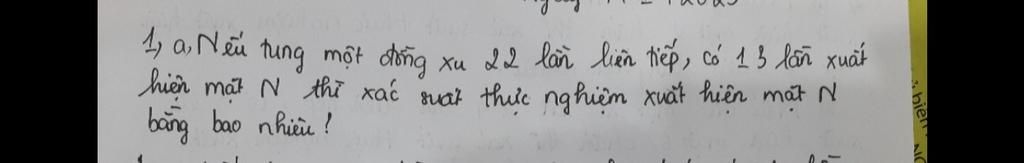 1, a, Nếu tung một đồng xu 22 lần liên tiếp, có 13 lần xuất
hiện mặt N thì xác suất thực nghiệm xuất hiện mặt N
bằng bao nhiêu!